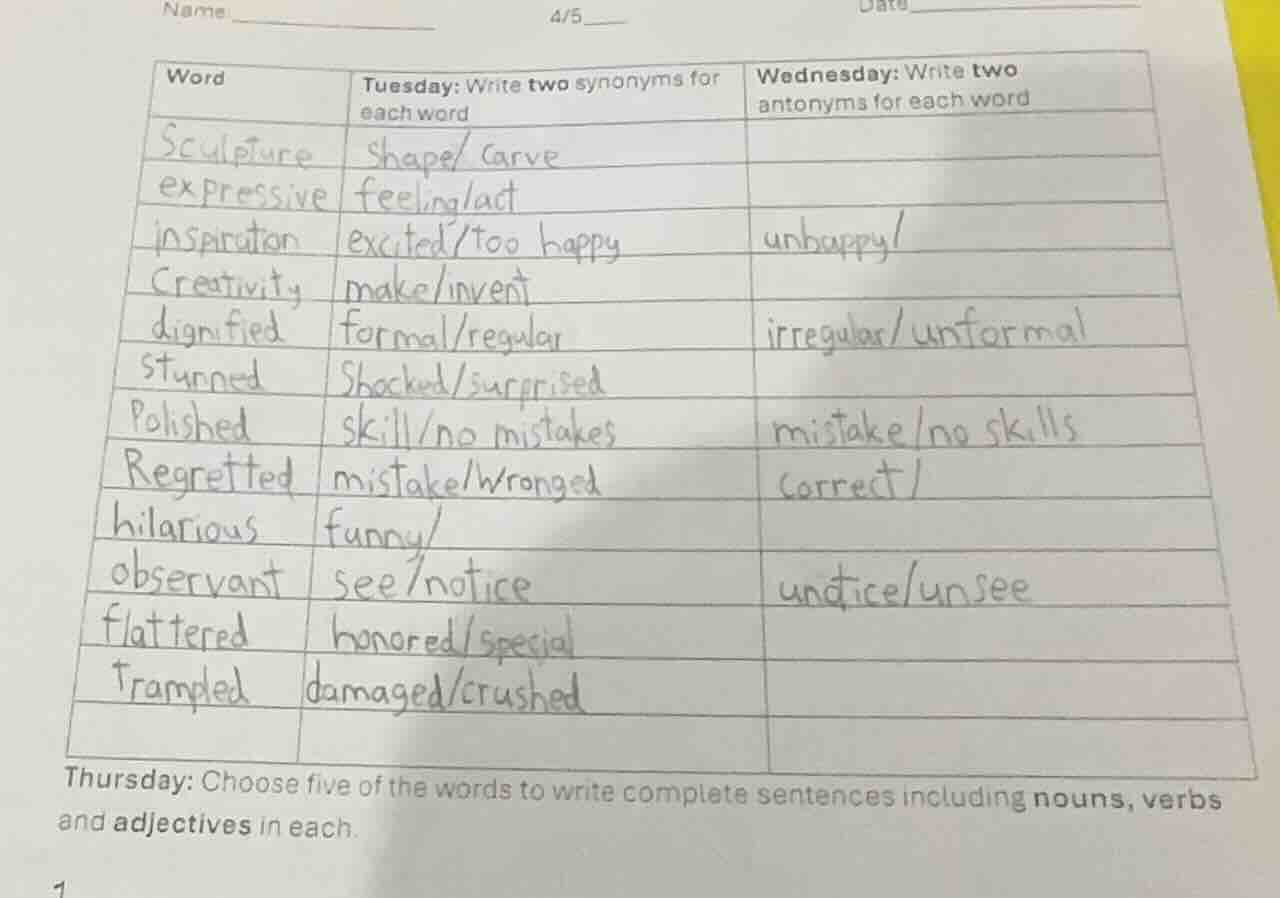 Name
4/5
Date
Word
Tuesday: Write two synonyms for
each word
Wednesday: Write two
antonyms for each word
Sculpture shape/ carve
expressive feeling/act
inspiration excited/too happy unhappy/
Creativity make/invent
dignified formal/regular irregular/unformal
stunned Shocked/surprised
Polished skill/no mistakes mistake/no skills
Regretted mistake/Wronged correct/
hilarious funny/
observant see/notice undtice/unsee
flattered honored/special
Trampled damaged/crushed
Thursday: Choose five of the words to write complete sentences including nouns, verbs
and adjectives in each.
1